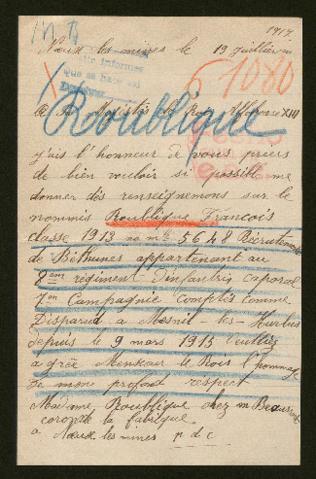 1917
Nœux les mines le 19 juillier
que se hace
6 1080
A Sa Majesté le Roi Alfonse XIII
Roublique
j'ais l'honneur de vous priers
de bien vouloir si possible me
donner dés renseignemons sur le
nommis Roublique François
classe 1913 no mle 5648 Recrutement
de Béthunes appartenant au
8em régiment d'infantris caporal
7em Campagnie Comptés comme
Disparud a Mesnil-les-Hurlus
depuis le 9 mars 1915 veulliez
agréé Monsieur le Rois l'hommage
de mone profont respect
Madame Roublique chez m
coron de la fabrique
a Nœux les mines p d c